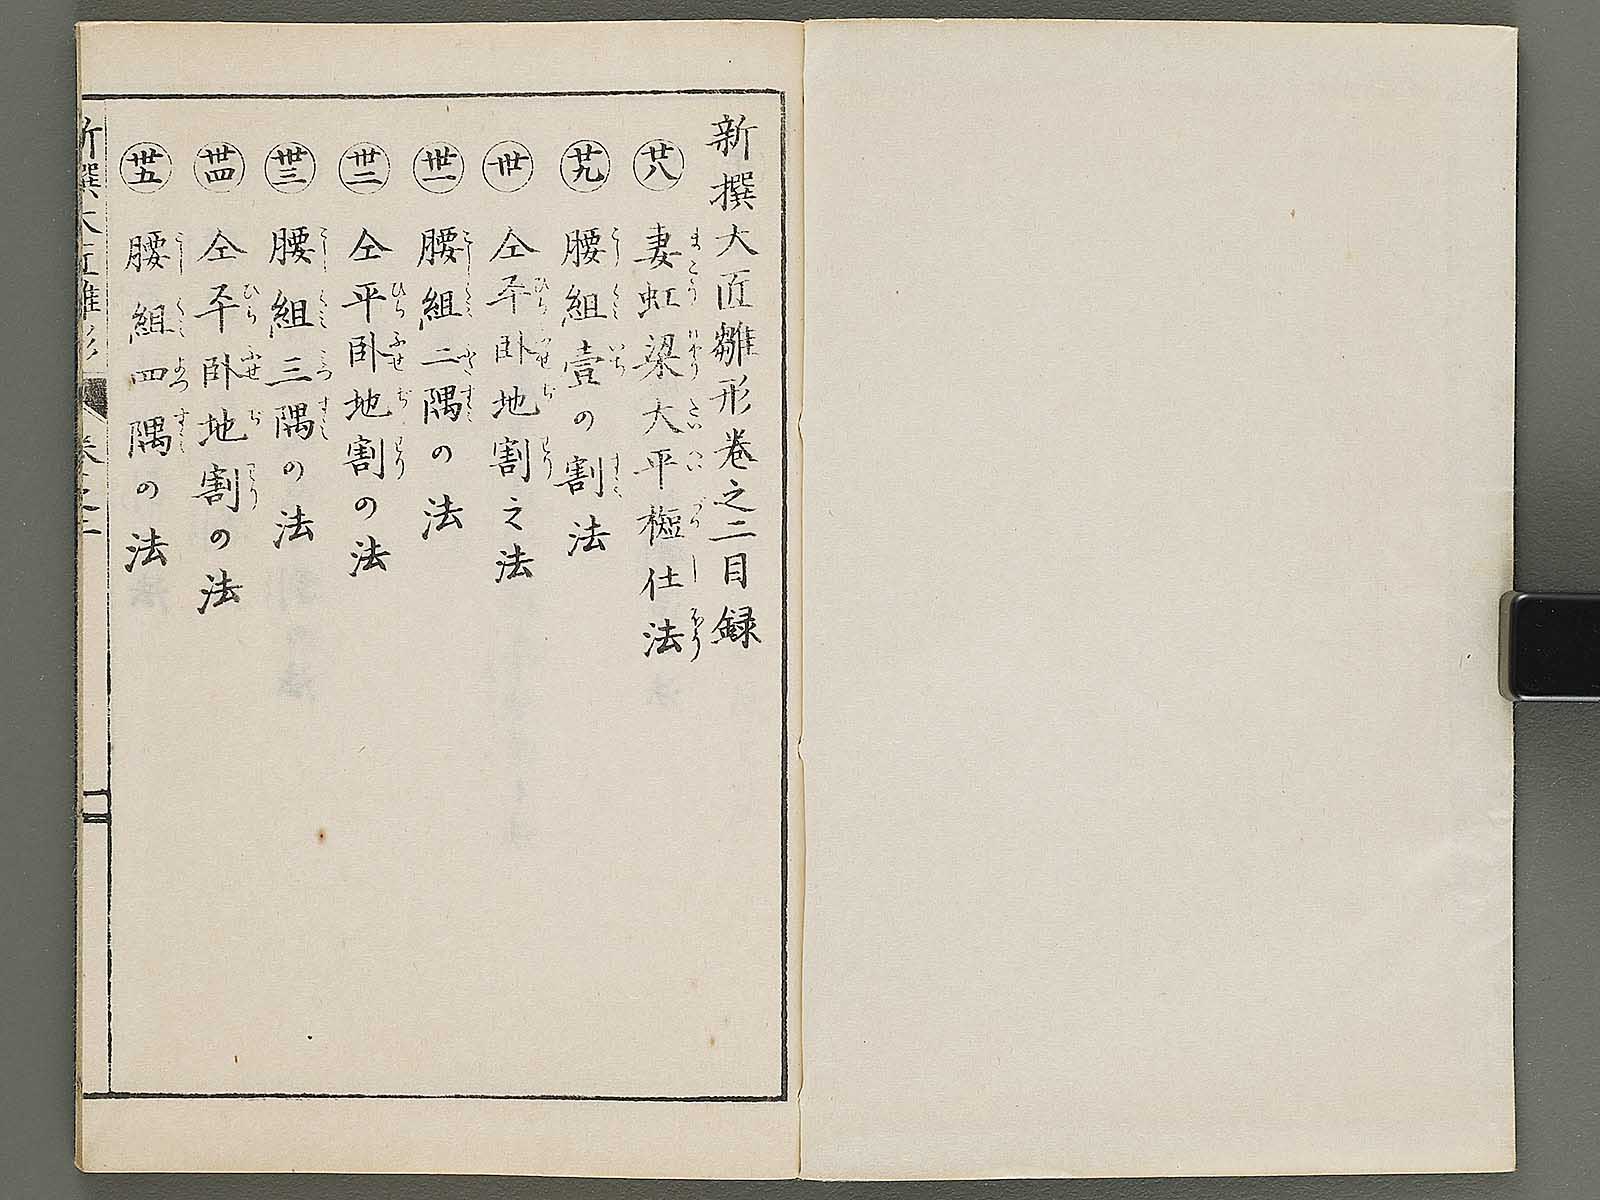 新撰大匠雛形卷之二目録
廿八 妻虹梁大平樞仕法
廿九 腰組壹の割法
卅 仝平卧地割之法
卅一 腰組二隅の法
卅二 仝平卧地割の法
卅三 腰組三隅の法
卅四 仝平卧地割の法
卅五 腰組四隅の法
新撰大匠雛形 卷之二 二